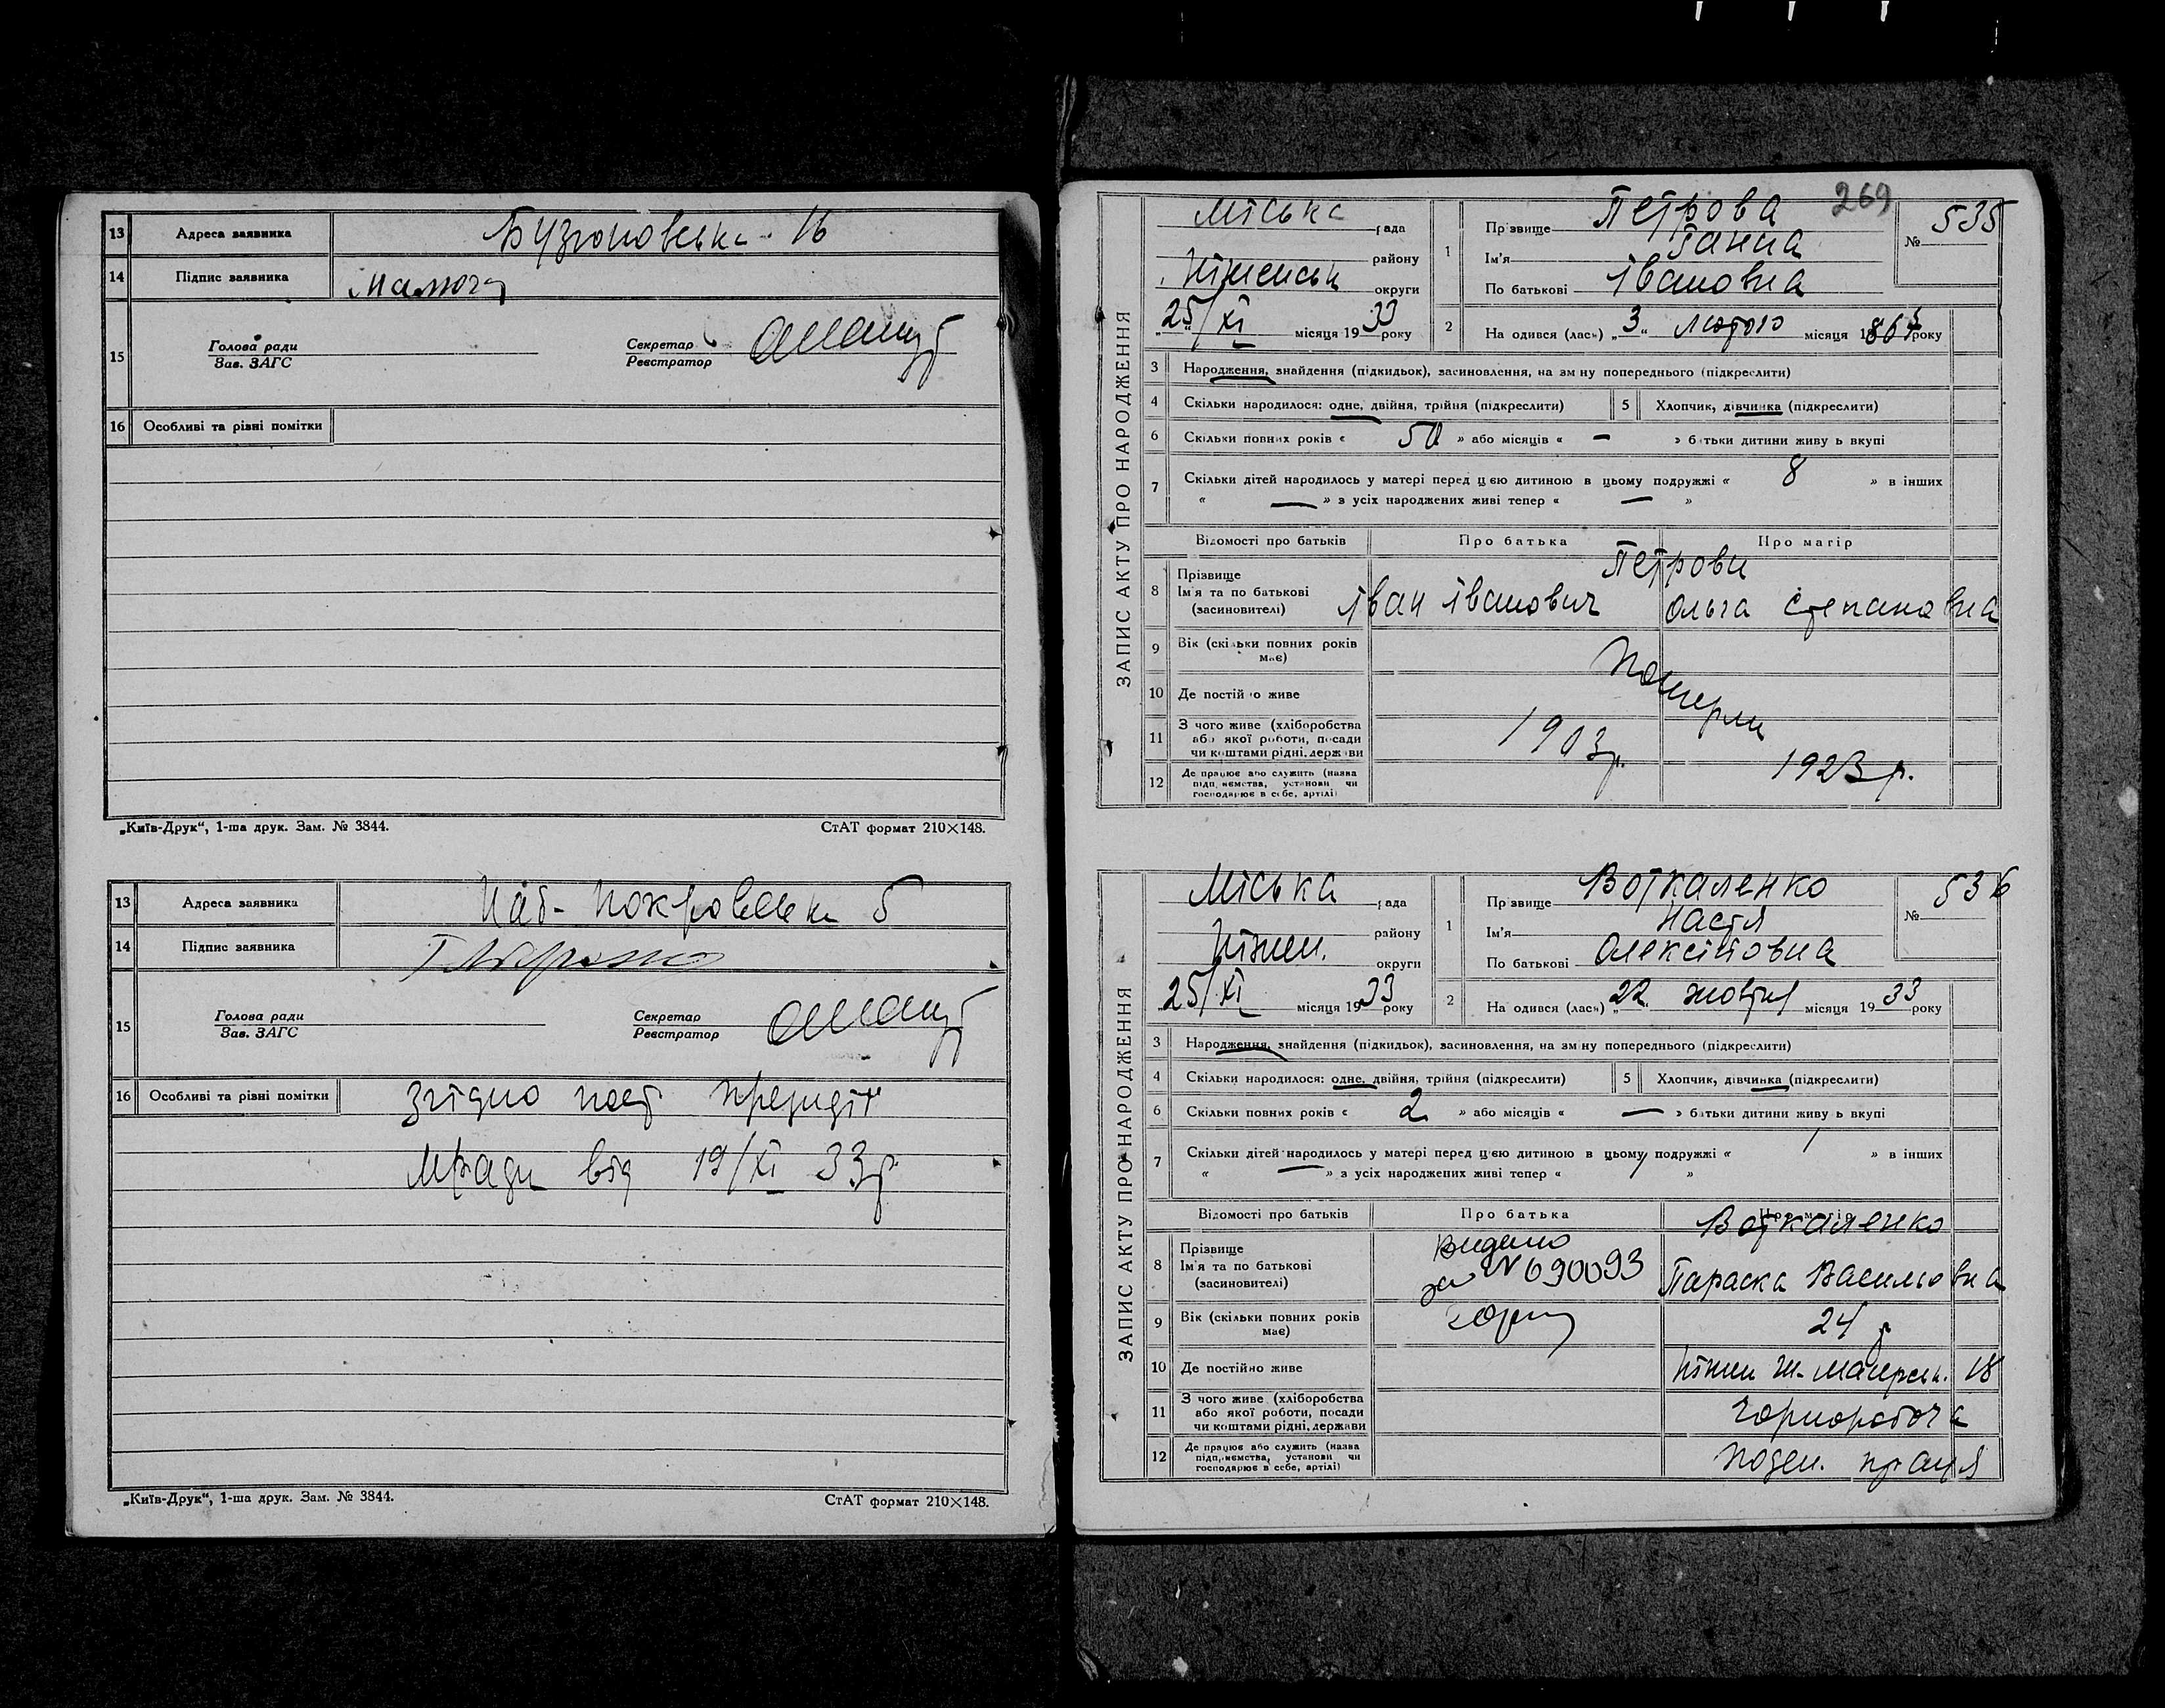 13 Адреса заявника Бузгоновська 16
14 Підпис заявника
15 Голова ради
Зав. ЗАГС
Секретар
Реєстратор
16 Особливі та різні помітки
„Київ-Друк“, 1-ша друк. Зам. № 3844. СтАТ формат 210×148.
13 Адреса заявника Наб- Покровська 5
14 Підпис заявника
15 Голова ради
Зав. ЗАГС
Секретар
Реєстратор
16 Особливі та різні помітки Згідно пост президії
Мради від 19/XI 33р.
„Київ-Друк“, 1-ша друк. Зам. № 3844. СтАТ формат 210×148.
269
ЗАПИС АКТУ ПРО НАРОДЖЕННЯ
Міська рада
району
Ніженськ округи
25/XI місяця 1933 року
1 Прізвище Петрова
Ім'я Ганна
По батькові Івановна
№ 535
2 На одився (лась) „3“ Лютого місяця року
3 Народження, знайдення (підкидьок), засиновлення, на зміну попереднього (підкреслити)
4 Скільки народилося: одне, двійня, трійня (підкреслити)
5 Хлопчик, дівчинка (підкреслити)
6 Скільки повних років « 50 » або місяців « — » батьки дитини живуть вкупі
7 Скільки дітей народилось у матері перед цією дитиною в цьому подружжі « 8 » в інших
« — » з усіх народжених живі тепер « — »
Відомості про батьків Про батька Про матір
8 Прізвище
Ім'я та по батькові
(засиновителі)
Петрови
Іван Іванович Ольга Степановна
9 Вік (скільки повних років
має)
10 Де постійно живе
Померли
11 З чого живе (хліборобства
або якої роботи, посади
чи коштами рідні, держави
1903р. 1923р.
12 Де працює або служить (назва
підприємства, установи чи
господарює в себе, артілі)
ЗАПИС АКТУ ПРО НАРОДЖЕННЯ
Міська рада
району
Ніжен. округи
25/XI місяця 1933 року
1 Прізвище Воткаленко
Ім'я Настя
По батькові Олексіївовна
№ 536
2 На одився (лась) „22. жовтня місяця 1933 року
3 Народження, знайдення (підкидьок), засиновлення, на зміну попереднього (підкреслити)
4 Скільки народилося: одне, двійня, трійня (підкреслити)
5 Хлопчик, дівчинка (підкреслити)
6 Скільки повних років « 2 » або місяців « — » батьки дитини живуть вкупі
7 Скільки дітей народилось у матері перед цією дитиною в цьому подружжі « / » в інших
« — » з усіх народжених живі тепер « / »
Відомості про батьків Про батька Про матір
8 Прізвище
Ім'я та по батькові
(засиновителі)
видано
за N 690093
Воткаленко
Параска Васильовна
9 Вік (скільки повних років
має)
24 р.
10 Де постійно живе Ніжен 18
11 З чого живе (хліборобства
або якої роботи, посади
чи коштами рідні, держави
Чорноробоча
12 Де працює або служить (назва
підприємства, установи чи
господарює в себе, артілі)
поден. праця